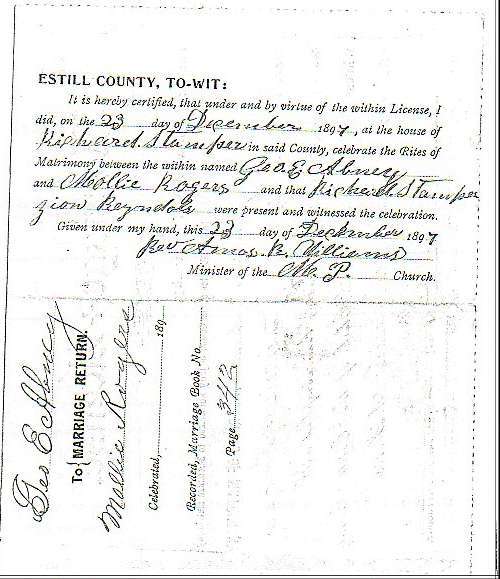 ESTILL COUNTY, TO-WIT:
It is hereby certified, that under and by virtue of the within License, I
did, on the 23 day of December 1897, at the house of
Richard Stamper in said County, celebrate the Rites of
Matrimony between the within named Geo E Abney
and Mollie Rogers and that Richard Stamper
Zion Reynolds were present and witnessed the celebration.
Given under my hand, this 23 day of December 1897
Rev Amos R. Williams
Minister of the M. P. Church.
Geo E Abney
To } MARRIAGE RETURN.
Mollie Rogers
Celebrated, 189
Recorded, Marriage Book No.
Page 342